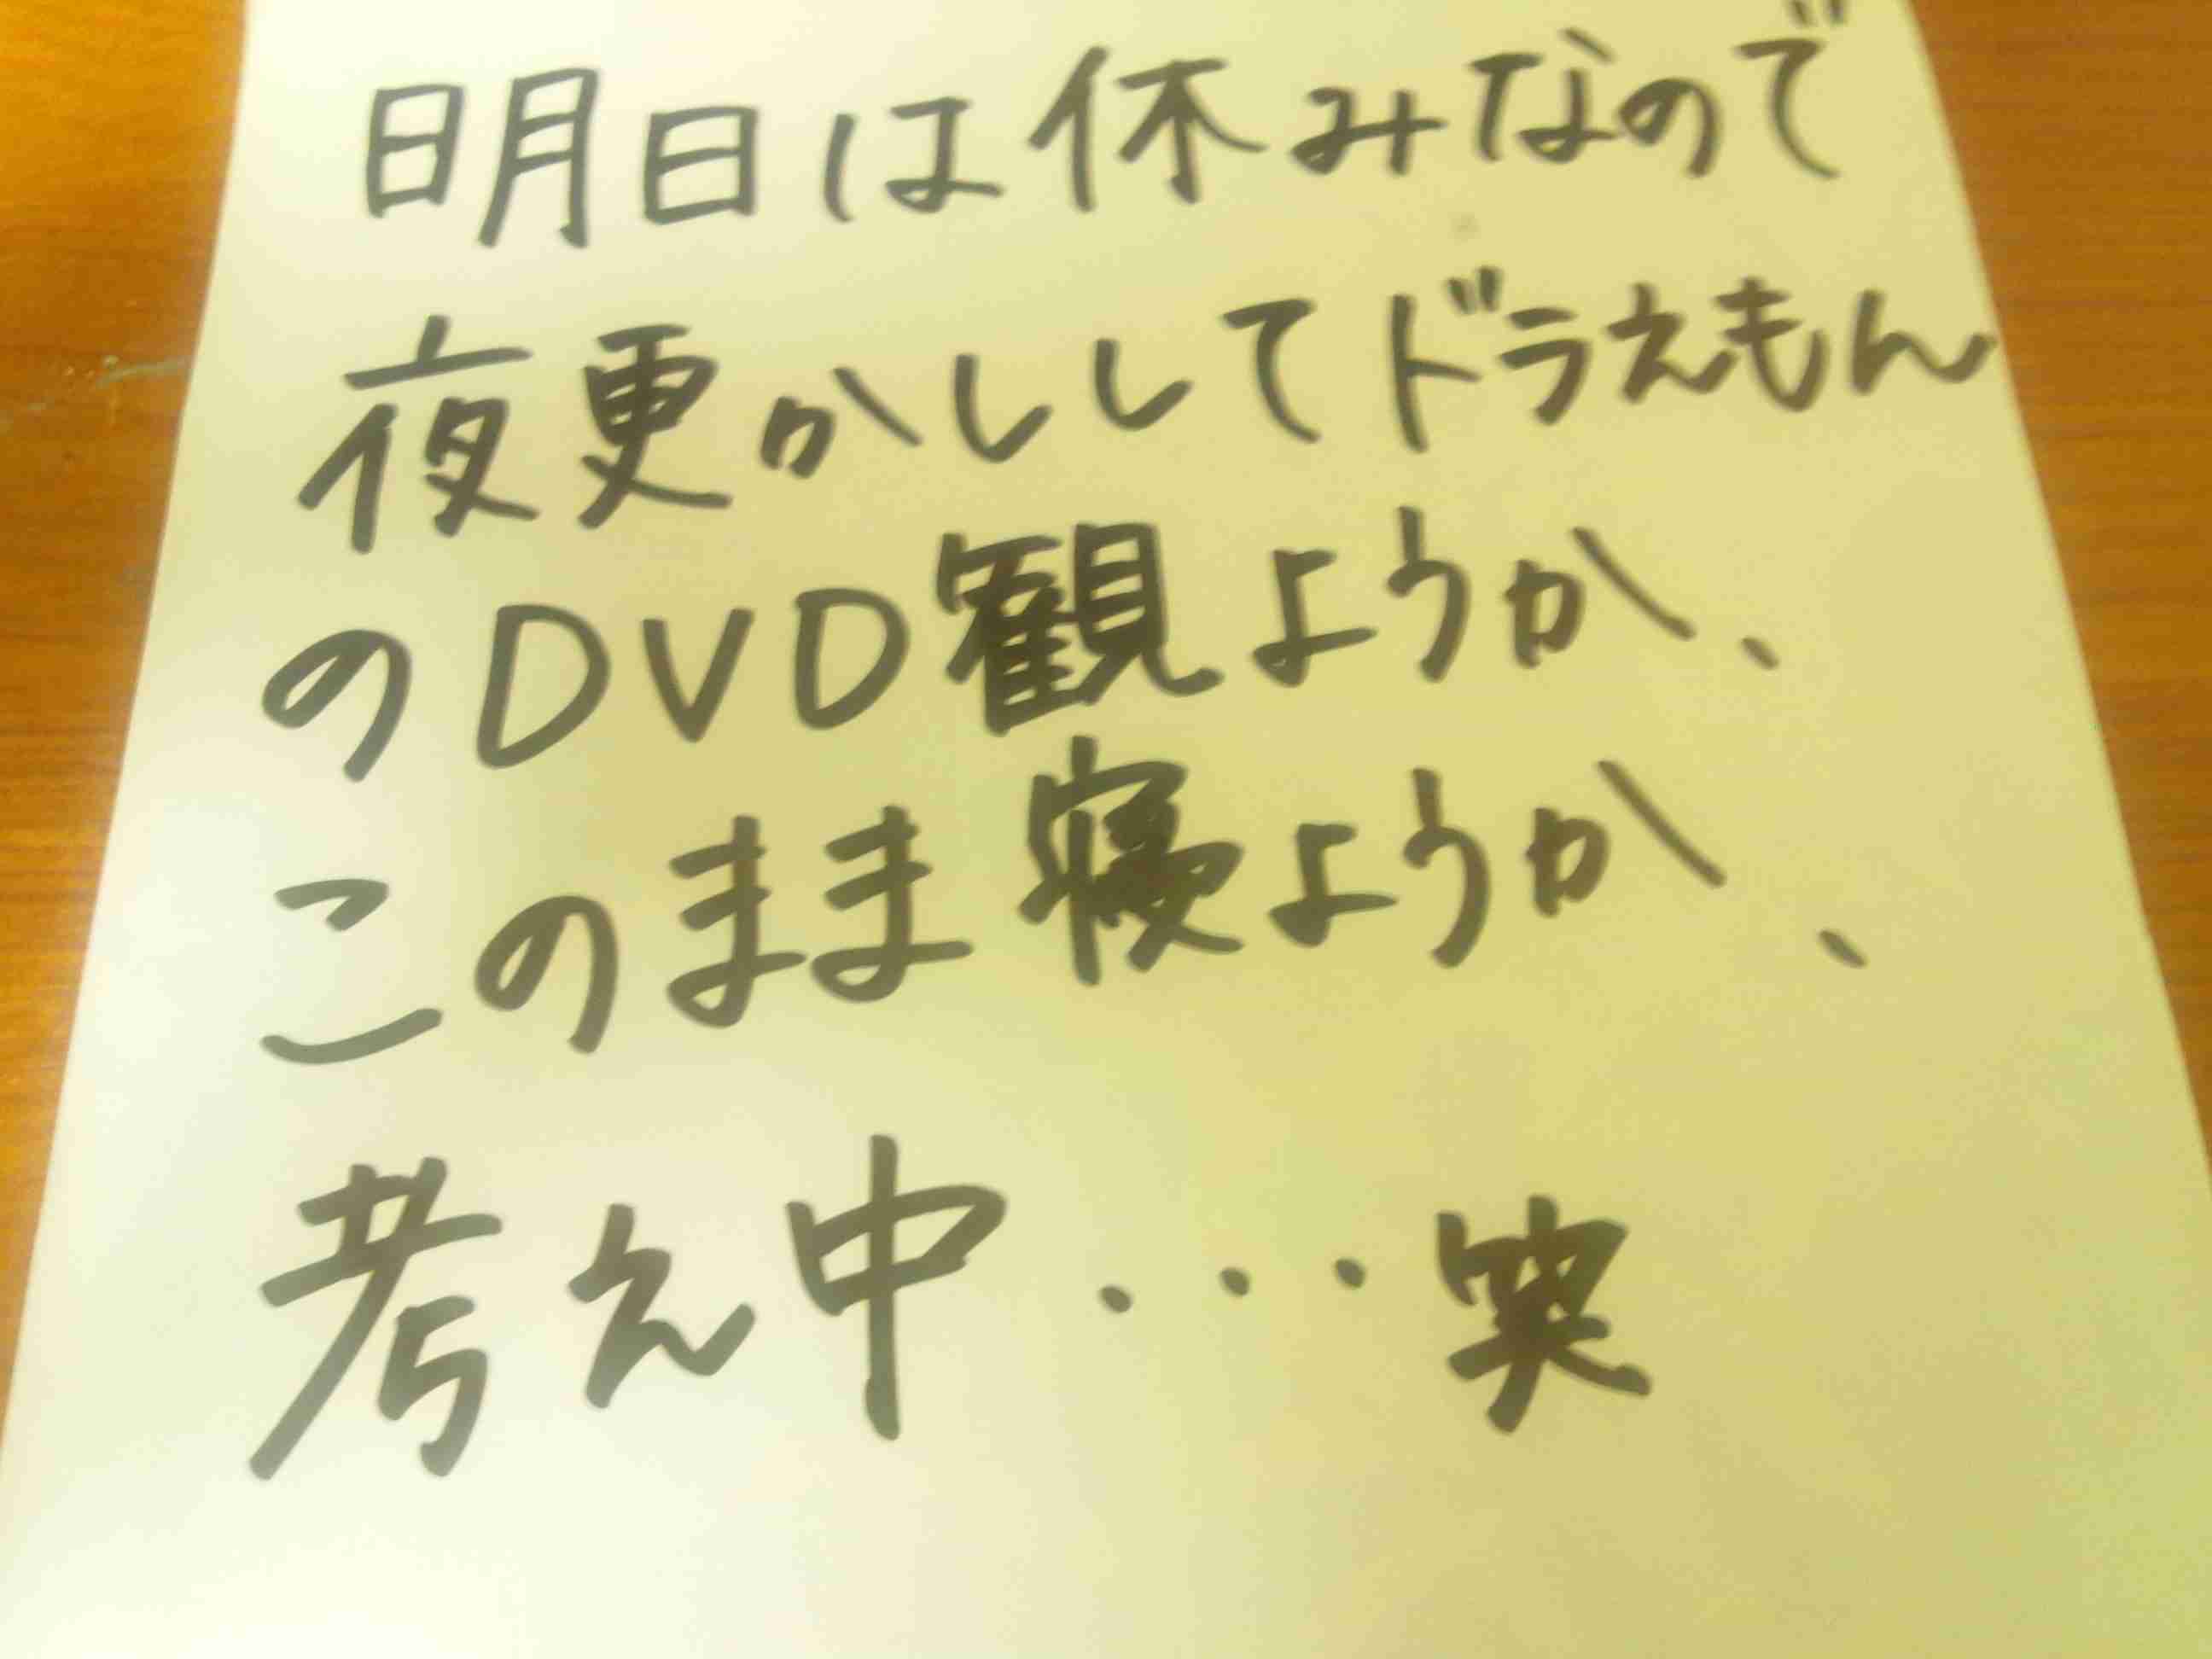 明日は休みなので
夜更かししてドラえもん
のDVD観ようか、
このまま寝ようか、
考え中...笑